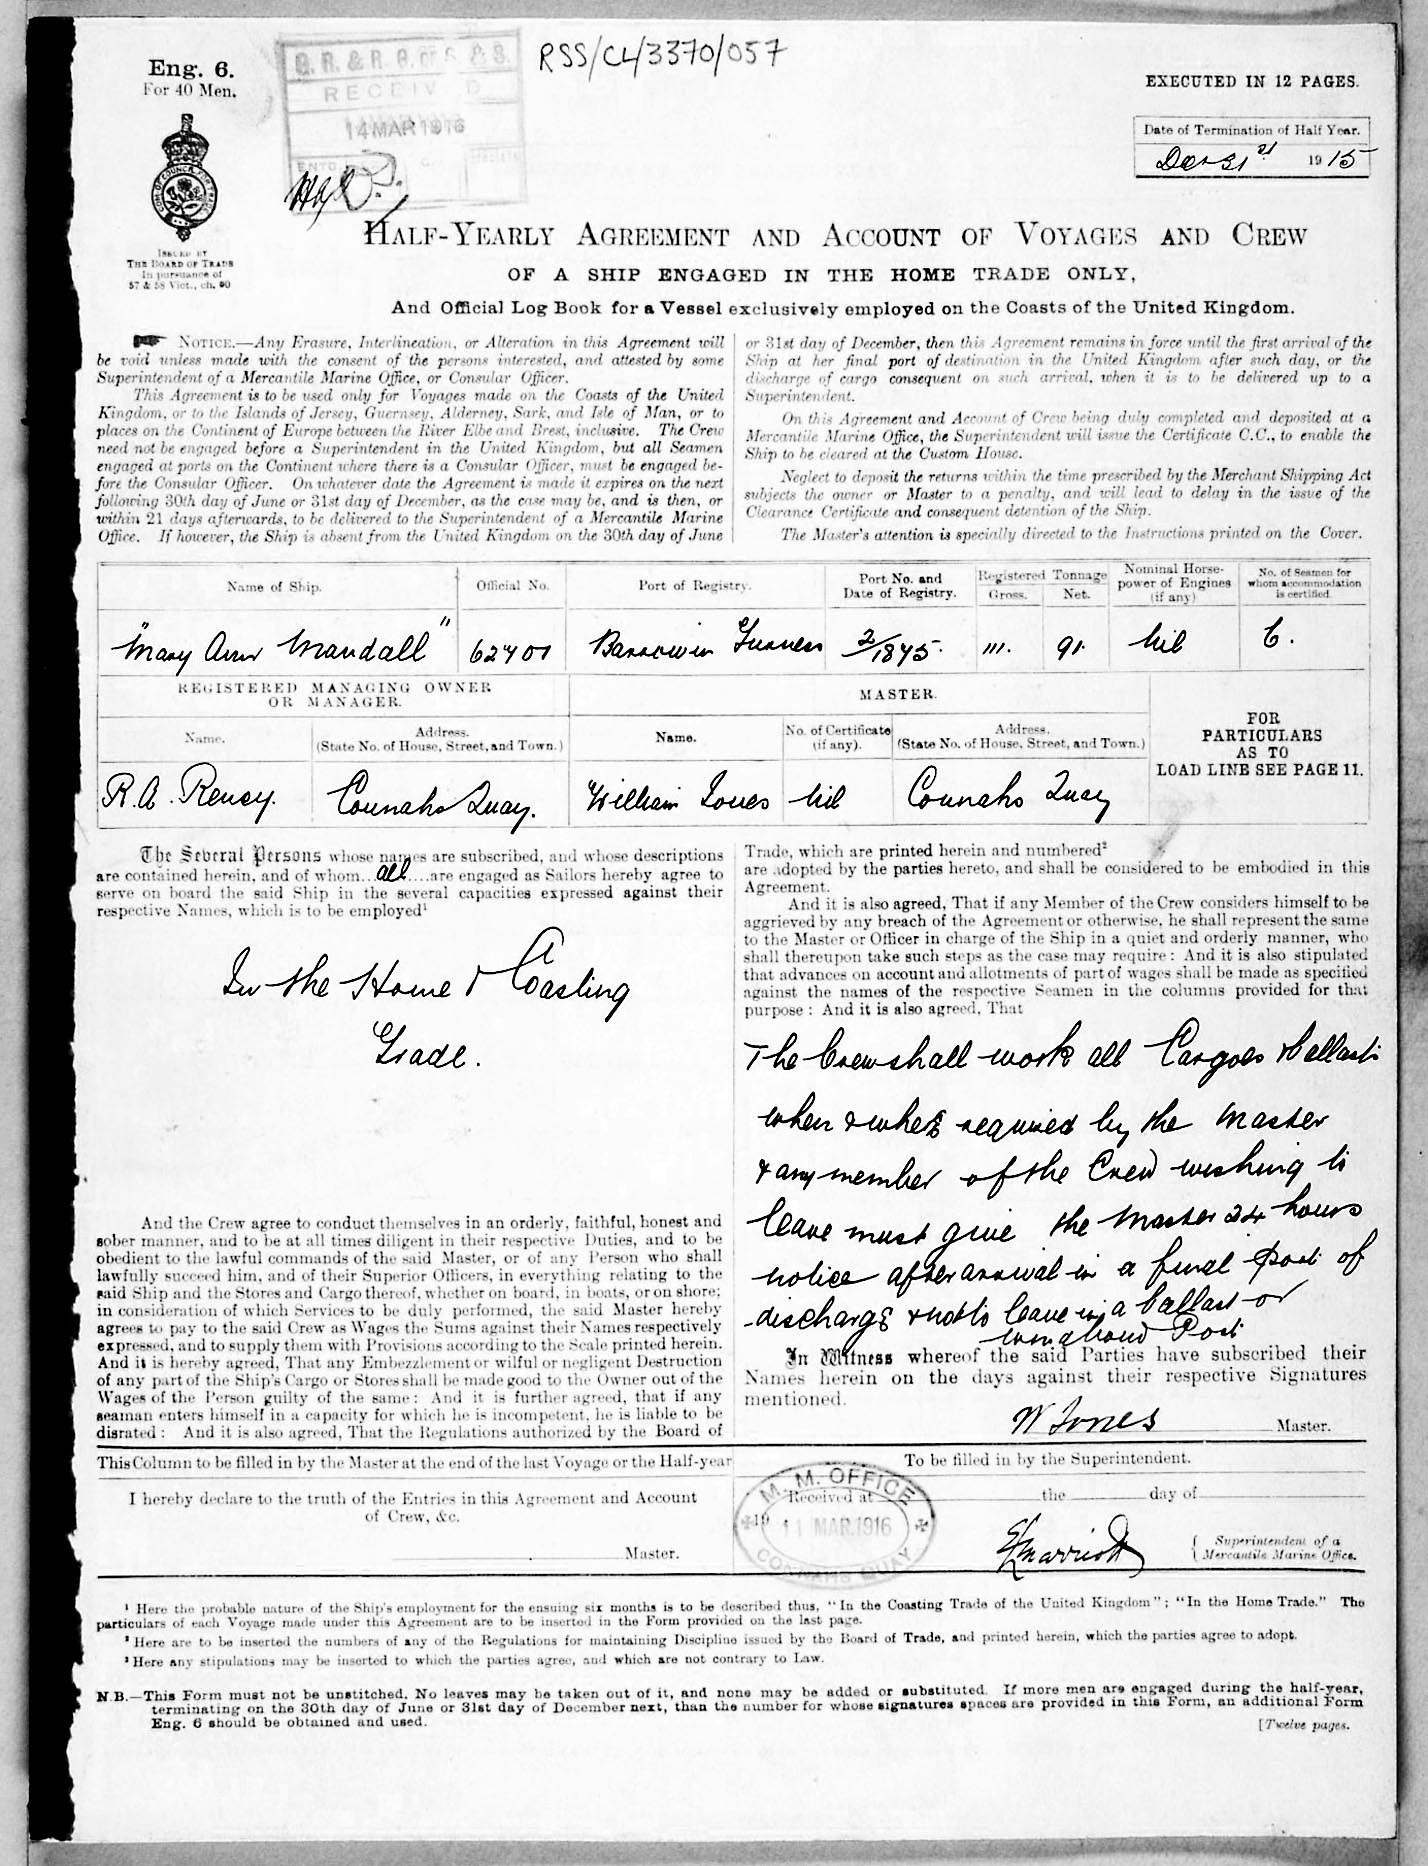 RSS/CL/3370/057
Eng. 6.
For 40 Men.
RECEIV D
14 MAR 1916
EXECUTED IN 12 PAGES.
Date of Termination of Half Year.
Dec 31st 1915
ISSUED BY
THE BOARD OF TRADE
In pursuance of
57 & 58 Vict., ch. 60
HALF-YEARLY AGREEMENT AND ACCOUNT OF VOYAGES AND CREW
OF A SHIP ENGAGED IN THE HOME TRADE ONLY,
And Official Log Book for a Vessel exclusively employed on the Coasts of the United Kingdom.
NOTICE.—Any Erasure, Interlineation, or Alteration in this Agreement will
be void unless made with the consent of the persons interested, and attested by some
Superintendent of a Mercantile Marine Office, or Consular Officer.
This Agreement is to be used only for Voyages made on the Coasts of the United
Kingdom, or to the Islands of Jersey, Guernsey, Alderney, Sark, and Isle of Man, or to
places on the Continent of Europe between the River Elbe and Brest, inclusive. The Crew
need not be engaged before a Superintendent in the United Kingdom, but all Seamen
engaged at ports on the Continent where there is a Consular Officer, must be engaged be-
fore the Consular Officer. On whatever date the Agreement is made it expires on the next
following 30th day of June or 31st day of December, as the case may be, and is then, or
within 21 days afterwards, to be delivered to the Superintendent of a Mercantile Marine
Office. If however, the Ship is absent from the United Kingdom on the 30th day of June
or 31st day of December, then this Agreement remains in force until the first arrival of the
Ship at her final port of destination in the United Kingdom after such day, or the
discharge of cargo consequent on such arrival, when it is to be delivered up to a
Superintendent.
On this Agreement and Account of Crew being duly completed and deposited at a
Mercantile Marine Office, the Superintendent will issue the Certificate C.C., to enable the
Ship to be cleared at the Custom House.
Neglect to deposit the returns within the time prescribed by the Merchant Shipping Act
subjects the owner or Master to a penalty, and will lead to delay in the issue of the
Clearance Certificate and consequent detention of the Ship.
The Master's attention is specially directed to the Instructions printed on the Cover.
Name of Ship. Official No. Port of Registry. Port No. and Date of Registry. Registered Tonnage Gross. Net. Nominal Horse-power of Engines (if any) No. of Seamen for whom accommodation is certified.
"Mary Ann Mandall" 62701 Barrow in Furness 2/1875. 111. 91. Nil 6.
REGISTERED MANAGING OWNER
OR MANAGER.
MASTER.
Name. Address. (State No. of House, Street, and Town.) Name. No. of Certificate (if any). Address. (State No. of House, Street, and Town.)
FOR
PARTICULARS
AS TO
LOAD LINE SEE PAGE 11.
R. A. Reney. Connahs Quay. William Jones Nil Connahs Quay
The Several Persons whose names are subscribed, and whose descriptions
are contained herein, and of whom all are engaged as Sailors hereby agree to
serve on board the said Ship in the several capacities expressed against their
respective Names, which is to be employed¹
In the Home & Coasting
Trade.
And the Crew agree to conduct themselves in an orderly, faithful, honest and
sober manner, and to be at all times diligent in their respective Duties, and to be
obedient to the lawful commands of the said Master, or of any Person who shall
lawfully succeed him, and of their Superior Officers, in everything relating to the
said Ship and the Stores and Cargo thereof, whether on board, in boats, or on shore;
in consideration of which Services to be duly performed, the said Master hereby
agrees to pay to the said Crew as Wages the Sums against their Names respectively
expressed, and to supply them with Provisions according to the Scale printed herein.
And it is hereby agreed, That any Embezzlement or wilful or negligent Destruction
of any part of the Ship's Cargo or Stores shall be made good to the Owner out of the
Wages of the Person guilty of the same: And it is further agreed, that if any
seaman enters himself in a capacity for which he is incompetent, he is liable to be
disrated: And it is also agreed, That the Regulations authorized by the Board of
Trade, which are printed herein and numbered²
are adopted by the parties hereto, and shall be considered to be embodied in this
Agreement.
And it is also agreed, That if any Member of the Crew considers himself to be
aggrieved by any breach of the Agreement or otherwise, he shall represent the same
to the Master or Officer in charge of the Ship in a quiet and orderly manner, who
shall thereupon take such steps as the case may require: And it is also stipulated
that advances on account and allotments of part of wages shall be made as specified
against the names of the respective Seamen in the columns provided for that
purpose: And it is also agreed, That
The Crew shall work all Cargoes & ballasts
when & where required by the Master
& any member of the Crew wishing to
leave must give the Master 24 hours
notice after arrival in a final Port of
discharge & not to leave in a ballast or
windbound Port
In Witness whereof the said Parties have subscribed their
Names herein on the days against their respective Signatures
mentioned.
W Jones Master.
This Column to be filled in by the Master at the end of the last Voyage or the Half-year
I hereby declare to the truth of the Entries in this Agreement and Account
of Crew, &c.
Master.
To be filled in by the Superintendent.
Received at the day of
19
M. M. OFFICE
11 MAR. 1916
CONNAHS QUAY
Superintendent of a
Mercantile Marine Office.
¹ Here the probable nature of the Ship's employment for the ensuing six months is to be described thus, "In the Coasting Trade of the United Kingdom"; "In the Home Trade." The
particulars of each Voyage made under this Agreement are to be inserted in the Form provided on the last page.
² Here are to be inserted the numbers of any of the Regulations for maintaining Discipline issued by the Board of Trade, and printed herein, which the parties agree to adopt.
³ Here any stipulations may be inserted to which the parties agree, and which are not contrary to Law.
N.B.—This Form must not be unstitched. No leaves may be taken out of it, and none may be added or substituted. If more men are engaged during the half-year,
terminating on the 30th day of June or 31st day of December next, than the number for whose signatures spaces are provided in this Form, an additional Form
Eng. 6 should be obtained and used.
[Twelve pages.